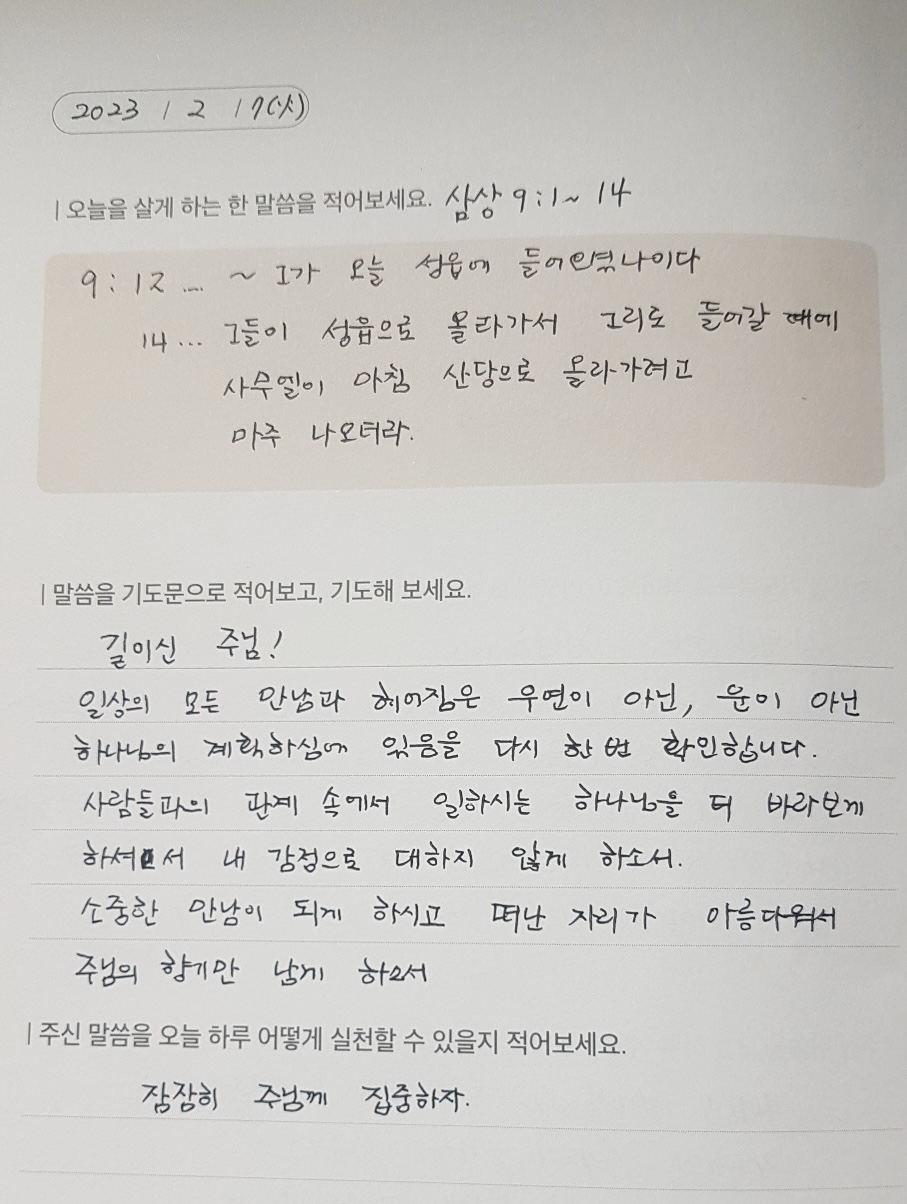 2023 / 2 / 7(火)
| 오늘을 살게 하는 한 말씀을 적어보세요. 삼상 9:1~14
9:12 .... ~ 그가 오늘 성읍에 들어오셨나이다
14... 그들이 성읍으로 올라가서 그리로 들어갈 때에
사무엘이 마침 산당으로 올라가려고
마주 나오더라.
| 말씀을 기도문으로 적어보고, 기도해 보세요.
길이신 주님!
일상의 모든 만남과 헤어짐은 우연이 아닌, 운이 아닌
하나님의 계획하심에 있음을 다시 한번 확인합니다.
사람들과의 관계 속에서 일하시는 하나님을 더 바라보게
하셔서 내 감정으로 대하지 않게 하소서.
소중한 만남이 되게 하시고 떠난 자리가 아름다워서
주님의 향기만 남게 하소서
| 주신 말씀을 오늘 하루 어떻게 실천할 수 있을지 적어보세요.
잠잠히 주님께 집중하자.